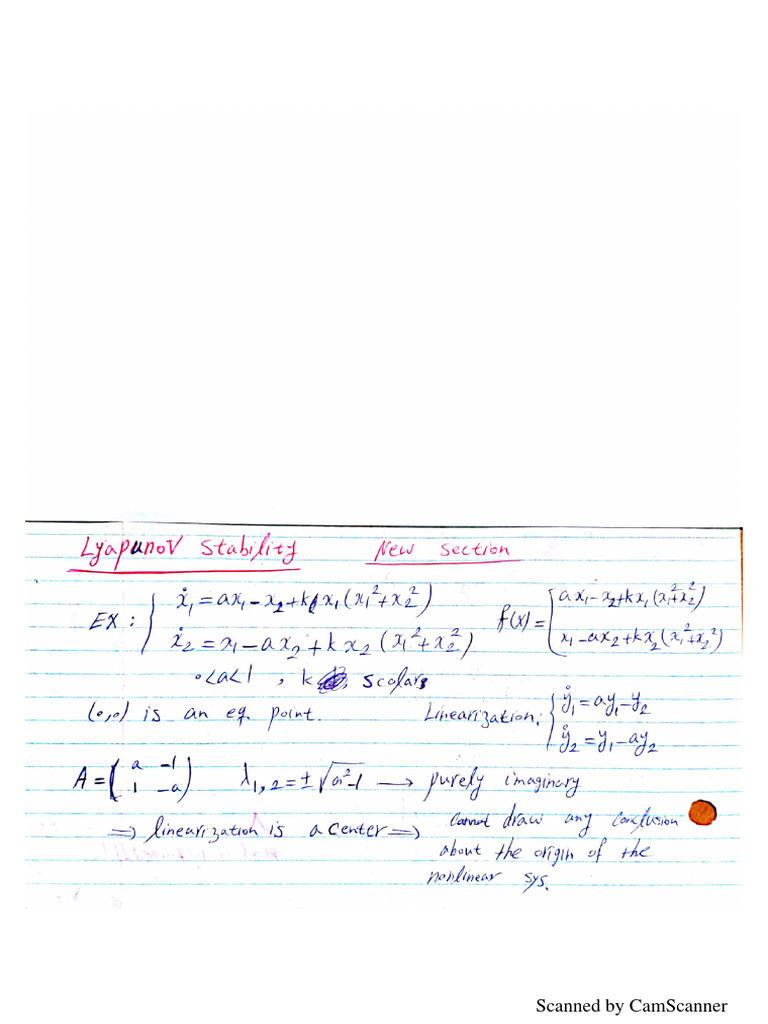 Lyapunov Stability New Section
EX: { ẋ₁ = ax₁ - x₂ + k x₁(x₁² + x₂²) f(x) = [ ax₁ - x₂ + kx₁(x₁² + x₂²)
ẋ₂ = x₁ - ax₂ + k x₂(x₁² + x₂²) x₁ - ax₂ + kx₂(x₁² + x₂²)
0<a<1 , k scalars
(0,0) is an eq. point. Linearization: { ẏ₁ = ay₁ - y₂
ẏ₂ = y₁ - ay₂
A = ( a -1
1 -a ) λ₁,₂ = ± √(a²-1) → purely imaginary
⇒ linearization is a center ⇒ cannot draw any conclusion
about the origin of the
nonlinear sys.
Scanned by CamScanner